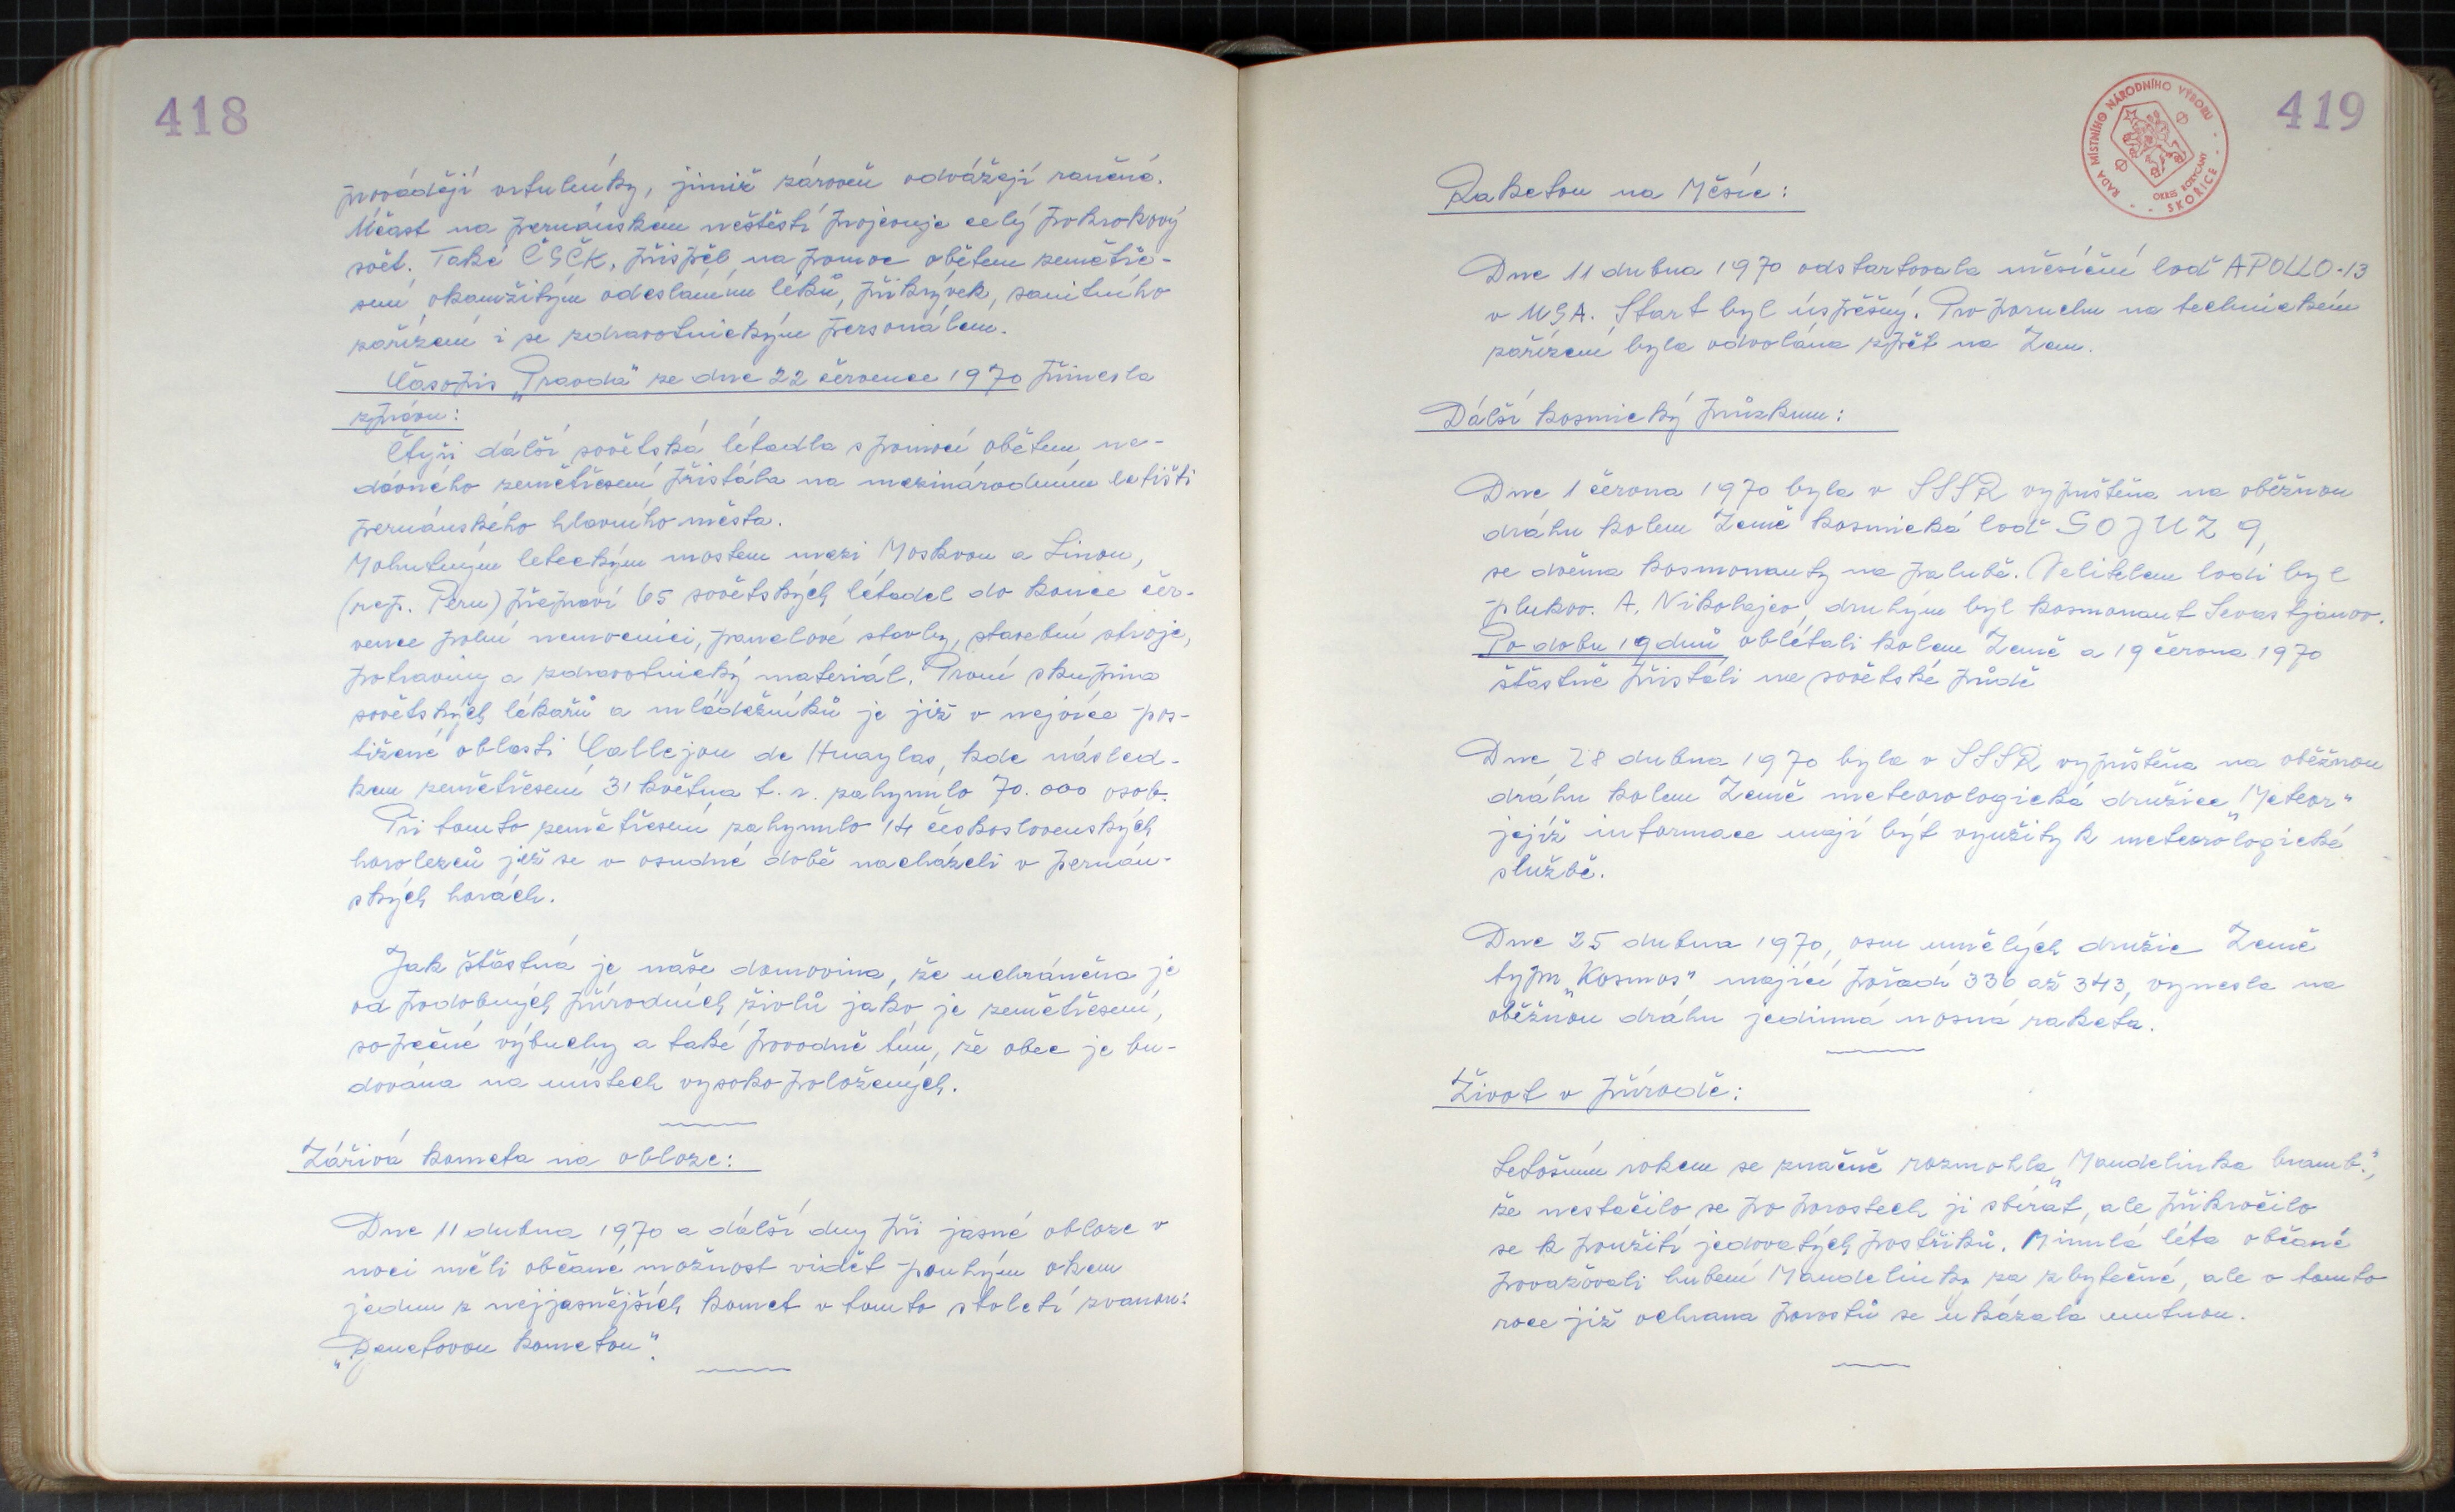 418
provádějí vrtulníky, jimiž zároveň odvážejí raněné.
Účast na peruánském neštěstí projevuje celý pokrokový
svět. Také ČSČK, přispěl na pomoc obětem zemětře-
sení okamžitým odesláním léků, přikrývek, sanitního
zařízení i se zdravotnickým personálem.
Časopis „Pravda" ze dne 22 července 1970 přinesla
zprávu:
Čtyři dálší sovětská létadla s pomocí obětem ne-
dávného zemětřesení přistála na mezinárodním letišti
peruánského hlavního města.
Mohutným leteckým mostem mezi Moskvou a Limou,
(rep. Peru) přepraví 65 sovětských létadel do konce čer-
vence polní nemocnici, panelové stavby, stavební stroje,
potraviny a zdravotnický materiál. První skupina
sovětských lékařů a mládežníků je již v nejvíce pos-
tižené oblasti Callejon de Huaylas, kde násled-
kem zemětřesení 31 května t. r. zahynulo 70.000 osob.
Při tomto zemětřesení zahynulo 14 československých
horolezců jež se v osudné době nacházeli v peruán-
ských horách.
Jak štăstná je naše domovina, že uchráněna je
od podobných přírodních živlů jako je zemětřesení,
sopečné výbuchy a také povodně tím, že obec je bu-
dována na místech vysoko položených.
Zářivá kometa na obloze:
Dne 11 dubna 1970 a dálší dny při jasné obloze v
noci měli občané možnost vidět pouhým okem
jednu z nejjasnějších komet v tomto století zvanou:
„Benetovou kometou".
419
RADA MÍSTNÍHO NÁRODNÍHO VÝBORU
OKRES ROKYCANY
SKOŘICE
Raketou na Měsíc:
Dne 11 dubna 1970 odstartovala měsíční loď APOLLO-13
v USA. Start byl úspěšný. Pro poruchu na technickém
zařízení byla odvolána zpět na Zem.
Dálší kosmický průzkum:
Dne 1 června 1970 byla v SSSR vypuštěna na oběžnou
dráhu kolem Země kosmická loď SOJUZ 9,
se dvěma kosmonauty na palubě. Velitelem lodi byl
plukov. A. Nikolajev, druhým byl kosmonaut Sevastjanov.
Po dobu 19 dnů oblétali kolem Země a 19 června 1970
štăstně přistáli na sovětské půdě
Dne 28 dubna 1970 byla v SSSR vypuštěna na oběžnou
dráhu kolem Země meteorologická družice „Meteor"
jejíž informace mají být využity k meteorologické
službě.
Dne 25 dubna 1970, osm umělých družic Země
typu „Kosmos" mající pořadí 336 až 343, vynesla na
oběžnou dráhu jediná nosná raketa.
Život v přírodě:
Letošním rokem se značně rozmohla „Mandelinka bramb.",
že nestačilo se po porostech ji sbírat, ale přikročilo
se k použití jedovatých postřiků. Minulá léta občané
považovali hubení Mandelinky za zbytečné, ale v tomto
roce již ochrana porostů se ukázala nutnou.